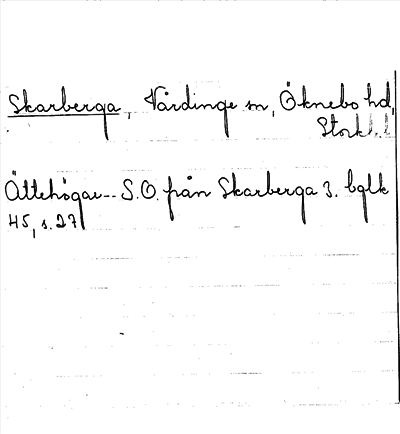 Skarberga, Vårdinge sn, Öknebo hd,
Stockh. l
Ättehögar-- S.O. från Skarberga 3. bglk
45, s. 27